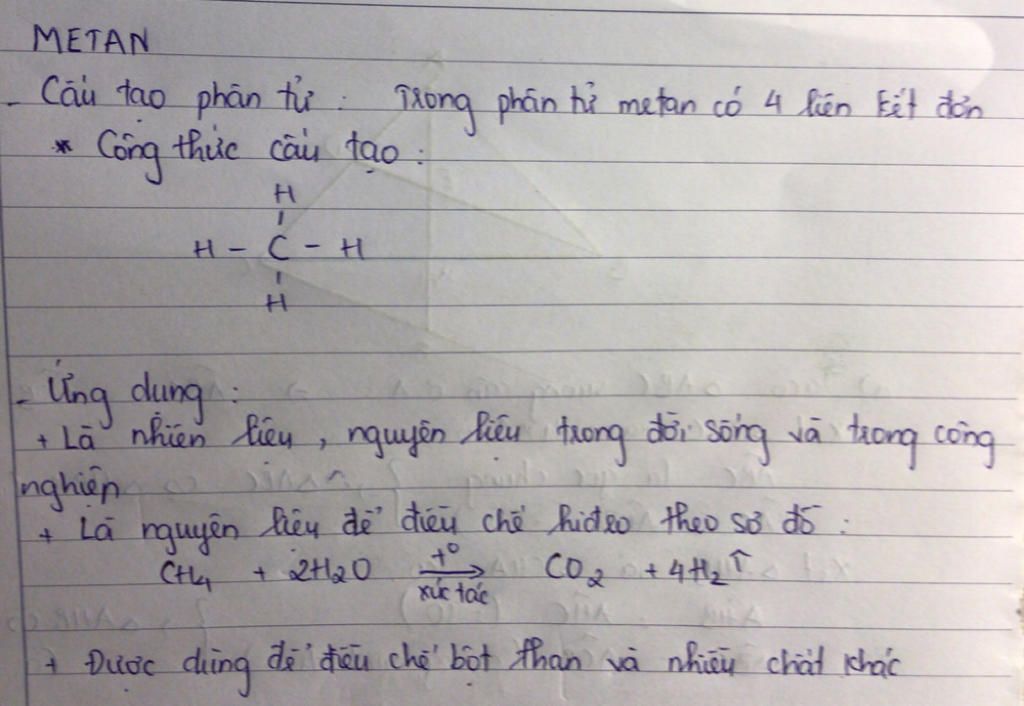 METAN
- Cấu tạo phân tử : Trong phân tử metan có 4 liên kết đơn
* Công thức cấu tạo :
H
H - C - H
H
- Ứng dụng :
+ Là nhiên liệu, nguyên liệu trong đời sống và trong công
nghiệp
+ Là nguyên liệu để điều chế hiđro theo sơ đồ :
CH4 + 2H2O t° xúc tác → CO2 + 4H2 ↑
+ Được dùng để điều chế bột than và nhiều chất khác